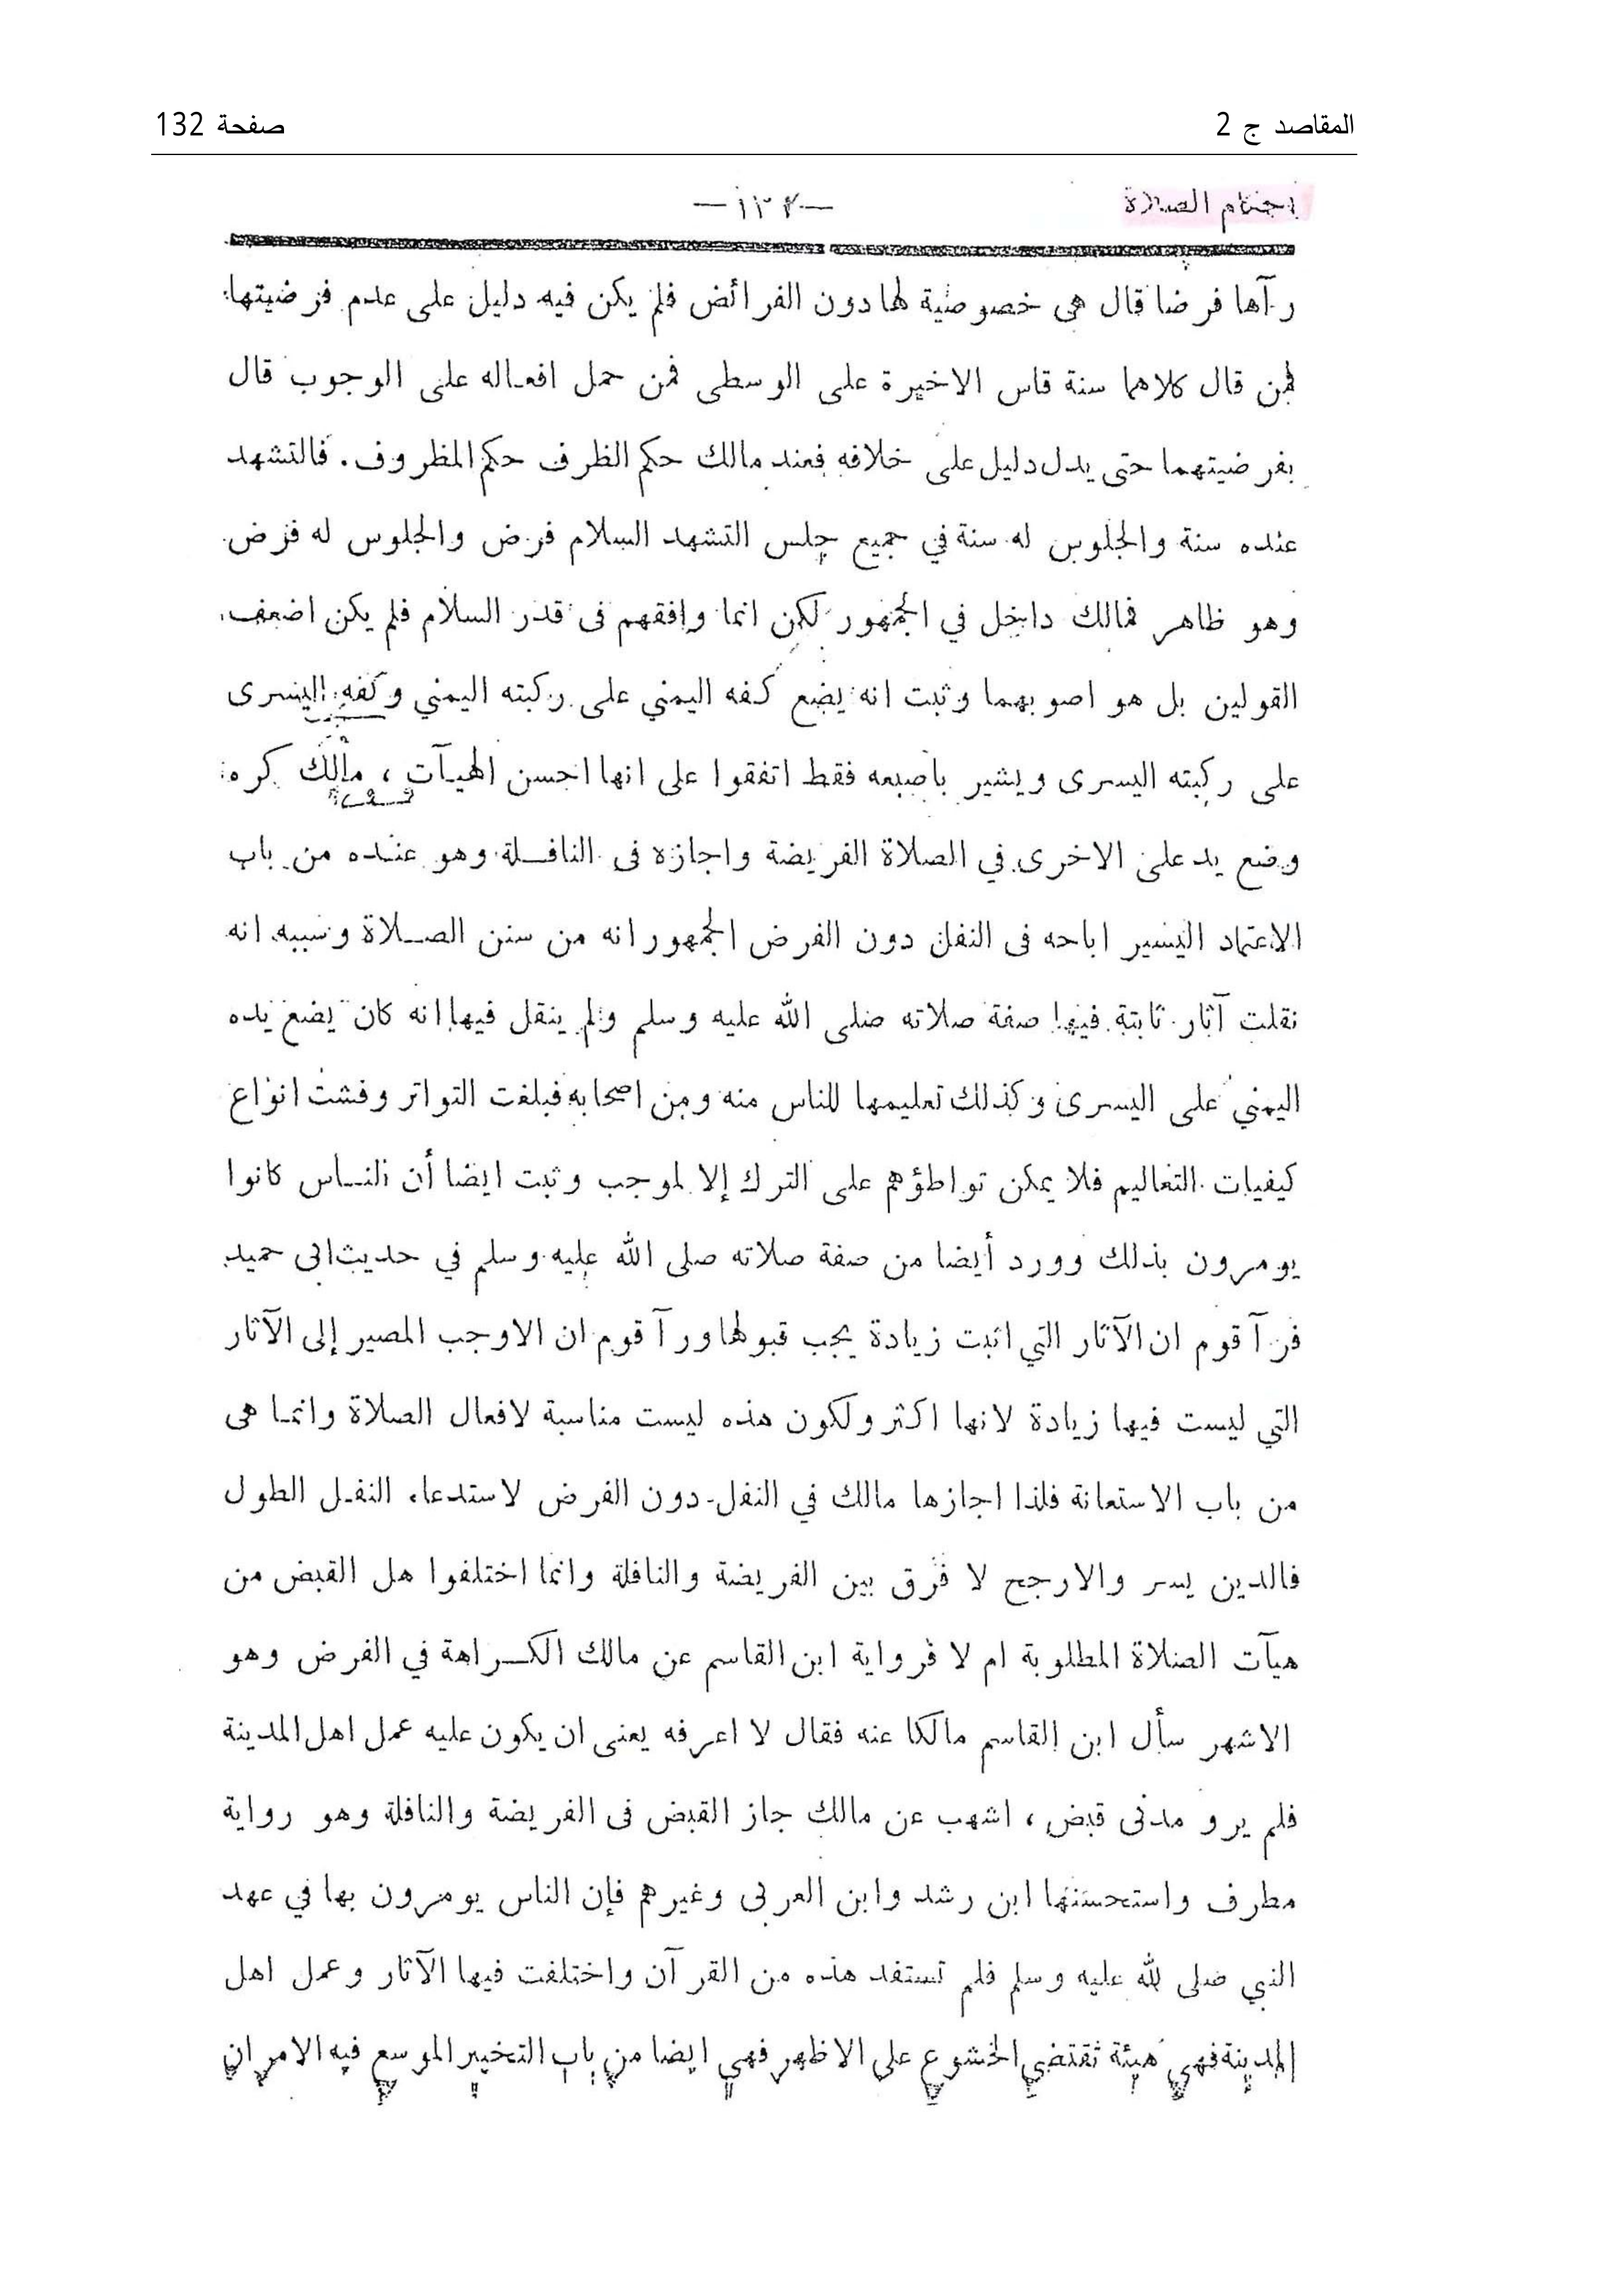 المقاصد ج 2
صفحة 132
احتتام الصلاة
— ١٣٢ —
رآها فرضا قال هى خصوصية لها دون الفرائض فلم يكن فيه دليل على عدم فرضيتها
فمن قال كلاهما سنة قاس الاخيرة على الوسطى فمن حمل افعاله على الوجوب قال
بفرضيتهما حتى يدل دليل على خلافه فعند مالك حكم الظرف حكم المظروف . فالتشهد
عنده سنة والجلوس له سنة في جميع جلس التشهد السلام فرض والجلوس له فرض
وهو ظاهر فمالك داخل في الجمهور لكن انما وافقهم فى قدر السلام فلم يكن اضعف
القولين بل هو اصوبهما وثبت انه يضع كفه اليمني على ركبته اليمني وكفه اليسرى
على ركبته اليسرى ويشير باصبعه فقط اتفقوا على انها احسن الهيآت ، مالك كره
وضع يد على الاخرى في الصلاة الفريضة واجازه فى النافلة وهو عنده من باب
الاعتماد اليسير اباحه فى النفل دون الفرض الجمهور انه من سنن الصلاة وسببه انه
نقلت آثار ثابتة فيها صفة صلاته صلى الله عليه وسلم ولم ينقل فيها انه كان يضع يده
اليمني على اليسرى وكذلك تعليمها للناس منه ومن اصحابه فبلغت التواتر وفشت انواع
كيفيات التعاليم فلا يمكن تواطؤهم على الترك إلا لموجب وثبت ايضا أن الناس كانوا
يومرون بذلك وورد أيضا من صفة صلاته صلى الله عليه وسلم في حديث ابى حميد
فرآ قوم ان الآثار التي اثبت زيادة يجب قبولها ورآ قوم ان الاوجب المصير إلى الآثار
التي ليست فيها زيادة لانها اكثر ولكون هذه ليست مناسبة لافعال الصلاة وانما هى
من باب الاستعانة فلذا اجازها مالك في النفل دون الفرض لاستدعاء النفل الطول
فالدين يسر والارجح لا فرق بين الفريضة والنافلة وانما اختلفوا هل القبض من
هيآت الصلاة المطلوبة ام لا فرواية ابن القاسم عن مالك الكراهة في الفرض وهو
الاشهر سأل ابن القاسم مالكا عنه فقال لا اعرفه يعنى ان يكون عليه عمل اهل المدينة
فلم يرو مدنى قبض ، اشهب عن مالك جاز القبض فى الفريضة والنافلة وهو رواية
مطرف واستحسنها ابن رشد وابن العربى وغيرهم فإن الناس يومرون بها في عهد
النبي صلى لله عليه وسلم فلم تستفد هذه من القرآن واختلفت فيها الآثار وعمل اهل
المدينة فهي هيئة تقتضي الخشوع على الاظهر فهي ايضا من باب التخيير الموسع فيه الامران